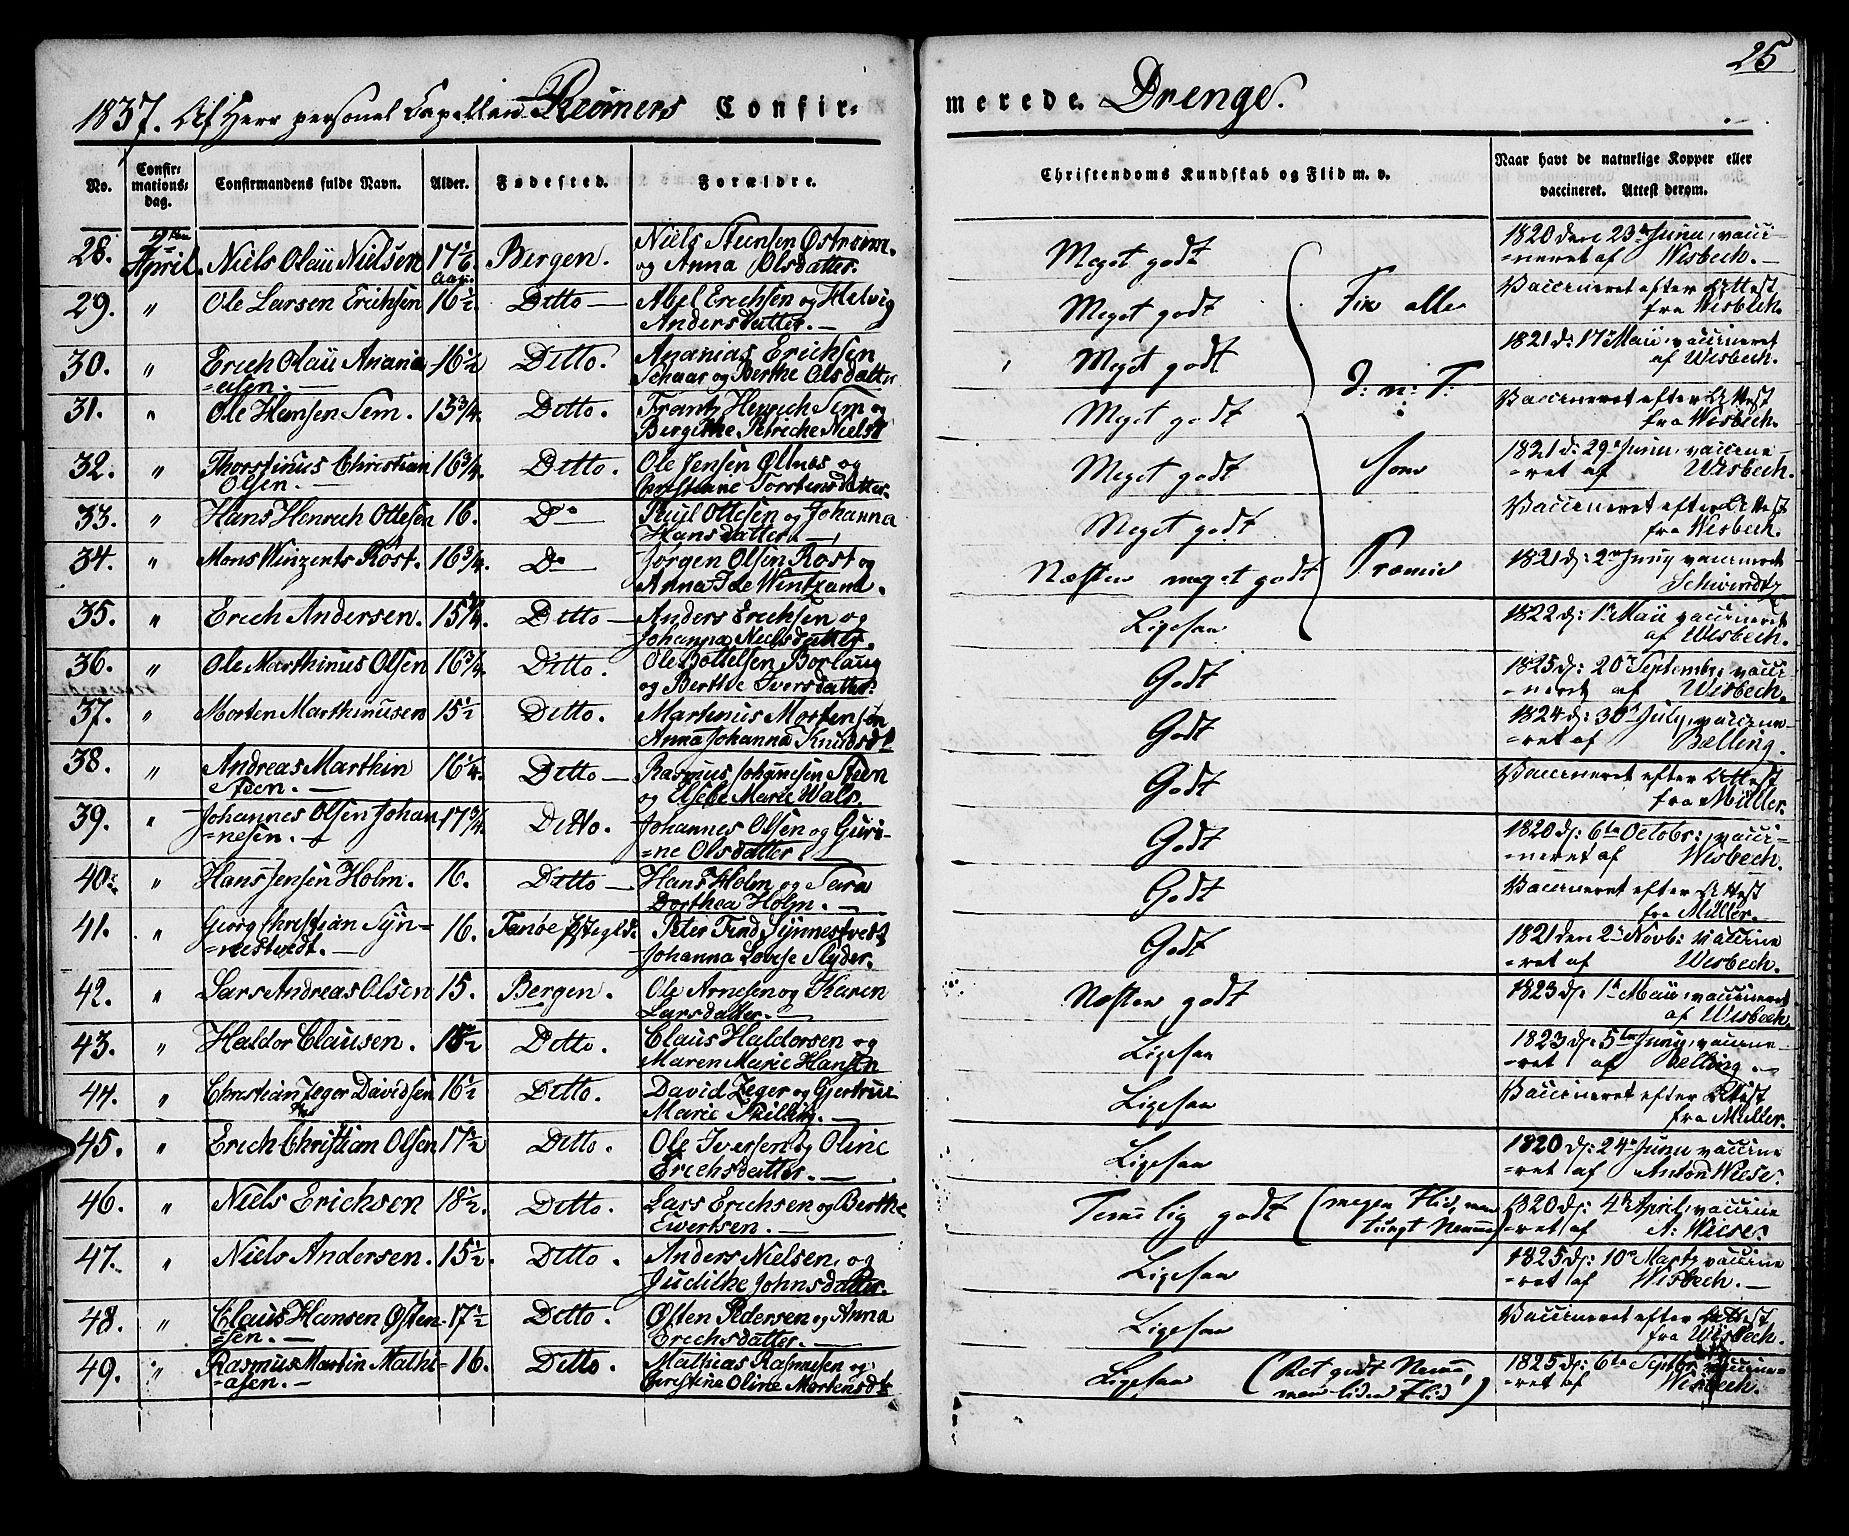 25
1837. Af Herr personel Capellan Reimers Confirmerede Drenge.
No. Confirmations-dag. Confirmandens fulde Navn. Alder. Fødested. Forældre. Christendoms Kundskab og Flid m. v. Naar havt de naturlige Kopper eller vaccineret. Attest derom.
28. 2den April. Niels Olaii Nielsen 17½ Aar. Bergen. Niels Steensen Østreim. og Anna Olsdatter. Meget godt 1820 den 23de Junii, vacci=neret af Wisbech.
29. " Ole Larsen Erichsen 16½ Ditto Abel Erichsen og Helvig Andersdatter. Meget godt Fik alle Vaccineret efter Attest fra Wisbech.
30. " Erich Olaii Anania=esen. 16½ Ditto. Ananias Erichsen Schaar og Berthe Olsdatter Meget godt 1821 d: 17de Maii, vaccineret af Wisbech.
31. " Ole Hansen Sem. 15¾. Ditto. Frantz Henrich Sem og Bergithe Petriche Nielsd Meget godt J: n: T: Vaccineret efter Attest fra Wisbech.
32. " Thorstinus Christian Olsen. 16¾. Ditto. Ole Jensen Ølnes og Christianne Torstensdatter. Meget godt som 1821 d: 29de Junii, vaccine=ret af Wisbech.
33. " Hans Henrich Ottesen 16. Do Poul Ottesen og Johanna Hansdatter. Meget godt Vaccineret efter Attest fra Wisbech.
34. " Mons Winzents Rost. 16¾. Do Jørgen Olsen Rost og Anna Ide Wintzant. Næsten meget godt Præmie 1821 d: 2den Juny vaccineret Schwindt
35. " Erich Andersen. 15¼. Ditto Anders Erichsen og Johanna Nielsdatter. Ligesaa 1822 d: 1de Maii vaccineret af Wisbech.
36. " Ole Marthinus Olsen 16¾. Ditto. Ole Bottelsen Borlaug og Berthe Iversdatter. Godt 1825 d: 20de Septembr: vacci=neret af Wisbech.
37. " Morten Marthinusen 15½ Ditto. Martinus Mortensen Anna Johanna Knudsdt Godt 1824 d: 30de July, vaccine=ret af Bælling.
38. " Andreas Marthin Steen. 16¼. Ditto Rasmus Johannesen Steen og Elsebe Marie Wals. Godt Vaccineret efter Attest fra Müller.
39. " Johannes Olsen Johan=nesen. 17¾. Ditto. Johannes Olsen og Guri=ne Olsdatter Godt 1820 d: 6te Octobr:, vacci=neret af Wisbech.
40. " Hans Jensen Holm. 16. Ditto Hans Holm og Sara Dorthea Holm. Godt Vaccineret efter Attest fra Müller.
41. " Georg Christian Syn=nestvedt. 16. Fanøe Pstegld. Peter Find Synnestvedt Johanna Lovise Slyder. Godt 1821 den 2de Novb: vaccine=ret af Wisbech.
42. " Lars Andreas Olsen 15. Bergen. Ole Arnesen og Karen Larsdatter. Næsten godt 1823 d: 1de Maii, vaccineret af Wisbech.
43. " Haldor Clausen. 18½ Ditto. Claus Haldorsen og Maren Marie Hansen Ligesaa 1823 d: 5te Juny, vaccine=ret af Bælling.
44. " Christian Jeger Davidsen 16½ Ditto. David Jeger og Gjertrue Marie Skilling. Ligesaa Vaccineret efter Attest fra Müller.
45. " Erich Christian Olsen 17½ Ditto. Ole Iversen og Oline Erichsdatter. Ligesaa 1820 d: 24de Junii vaccine=ret af Anton Wiese.
46. " Niels Erichsen 18½. Ditto. Lars Erichsen og Berthe Ewertsen. Temelig godt (megen Flid, men tungt Nemme) 1820 d: 4de April, vaccine=ret af A: Wiese.
47. " Niels Andersen. 15½. Ditto. Anders Nielsen, og Judithe Johnsdatter. Ligesaa 1825 d: 10de Marts, vaccine=ret af Wisbech.
48. " Claus Hansen Østen=sen. 17½ Ditto. Østen Pedersen og Anna Erichsdatter. Ligesaa Vaccineret efter Attest, fra Wisbech.
49. " Rasmus Martin Mathi=asen. 16. Ditto. Mathias Rasmusen og Christine Oline Mortensdt Ligesaa (Ret godt Nemme, men liden Flid) 1825 d: 6te Septbr: vaccine=ret af Wisbech.